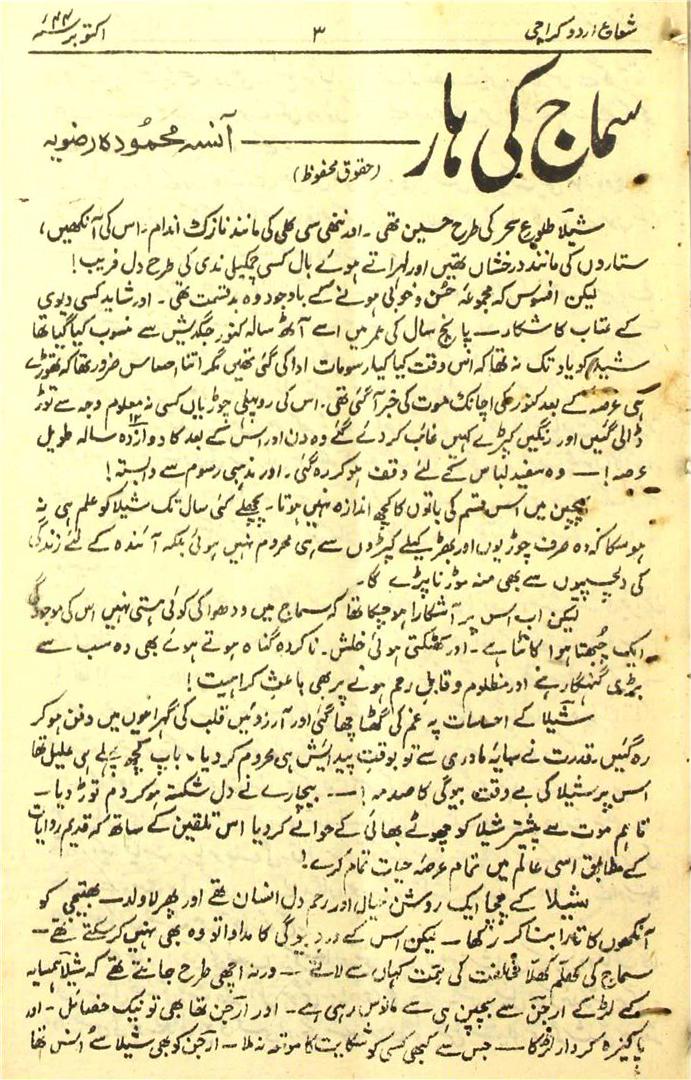 شعاع اردو کراچی ۳ اکتوبر سنہ ۴۴ء
سماج کی ہار
آنسہ محمودہ رضویہ
(حقوق محفوظ)
شیلا طلوعِ سحر کی طرح حسین تھی ۔ اور ننھی سی کلی کی مانند نازک اندام ۔ اس کی آنکھیں،
ستاروں کی مانند درخشاں تھیں اور لہراتے ہوئے بال کسی چمکیلی ندی کی طرح دل فریب!
لیکن افسوس کہ مجموعۂ حسن و خوبی ہونے کے باوجود وہ بدقسمت تھی ۔ اور شاید کسی دیوی
کے عتاب کا شکار — پانچ سال کی عمر میں اسے آٹھ سالہ کنور جگدیش سے منسوب کیا گیا تھا
شیلا کو یاد تک نہ تھا کہ اس وقت کیا کیا رسومات ادا کی گئی تھیں مگر اتنا احساس ضرور تھا کہ تھوڑے
ہی عرصہ کے بعد کنور کی اچانک موت کی خبر آ گئی تھی ۔ اس کی روپہلی چوڑیاں کسی نہ معلوم وجہ سے توڑ
ڈالی گئیں اور رنگین کپڑے کہیں غائب کر دئے گئے وہ دن اور اس کے بعد کا دوازدہ ۱۲ سالہ طویل
عرصہ! — وہ سفید لباس کے لئے وقف ہو کر رہ گئی ۔ اور مذہبی رسوم سے وابستہ!
بچپن میں اس قسم کی باتوں کا کچھ اندازہ نہیں ہوتا ۔ پچھلے کئی سال تک شیلا کو علم ہی نہ
ہو سکا کہ وہ صرف چوڑیوں اور بھڑکیلے کپڑوں سے ہی محروم نہیں ہوئی بلکہ آئندہ کے لئے زندگی
کی دلچسپیوں سے بھی منہ موڑنا پڑے گا ۔
لیکن اب اس پر آشکارا ہو چکا تھا کہ سماج میں ودھوا کی کوئی ہستی نہیں اس کی موجودگی
ایک چُبھتا ہوا کانٹا ہے ۔ اور کھٹکتی ہوئی خلش ۔ ناکردہ گناہ ہوتے ہوئے بھی وہ سب سے
بڑی گنہگار ہے اور مظلوم و قابلِ رحم ہونے پر بھی باعثِ کراہیت!
شیلا کے احساسات پہ غم کی گھٹا چھا گئی اور آرزوئیں قلب کی گہرائیوں میں دفن ہو کر
رہ گئیں ۔ قدرت نے سایۂ مادری سے تو بوقتِ پیدائش ہی محروم کر دیا ۔ باپ کچھ پہلے ہی علیل تھا
اس پر شیلا کی بے وقت بیوگی کا صدمہ! — بیچارے نے دل شکستہ ہو کر دم توڑ دیا —
تاہم موت سے پیشتر شیلا کو چھوٹے بھائی کے حوالے کر دیا اس تلقین کے ساتھ کہ قدیم روایات
کے مطابق اسی عالم میں تمام عرصۂ حیات تمام کرے!
شیلا کے چچا ایک روشن خیال اور رحم دل انسان تھے اور پھر لاولد — بھتیجی کو
آنکھوں کا تارا بنا کر رکھا — لیکن اس کے دردِ بیوگی کا مداوا تو وہ بھی نہیں کر سکتے تھے —
سماج کی کھلم کھلا مخالفت کی ہمت کہاں سے لاتے — ورنہ اچھی طرح جانتے تھے کہ شیلا ہمسایہ
کے لڑکے ارجن سے بچپن ہی سے مانوس رہی ہے ۔ اور ارجن تھا بھی تو نیک خصائل ۔ اور
پاکیزہ کردار لڑکا — جس سے کبھی کسی کو شکایت کا موقعہ نہ ملا — ارجن کو بھی شیلا سے اُنس تھا